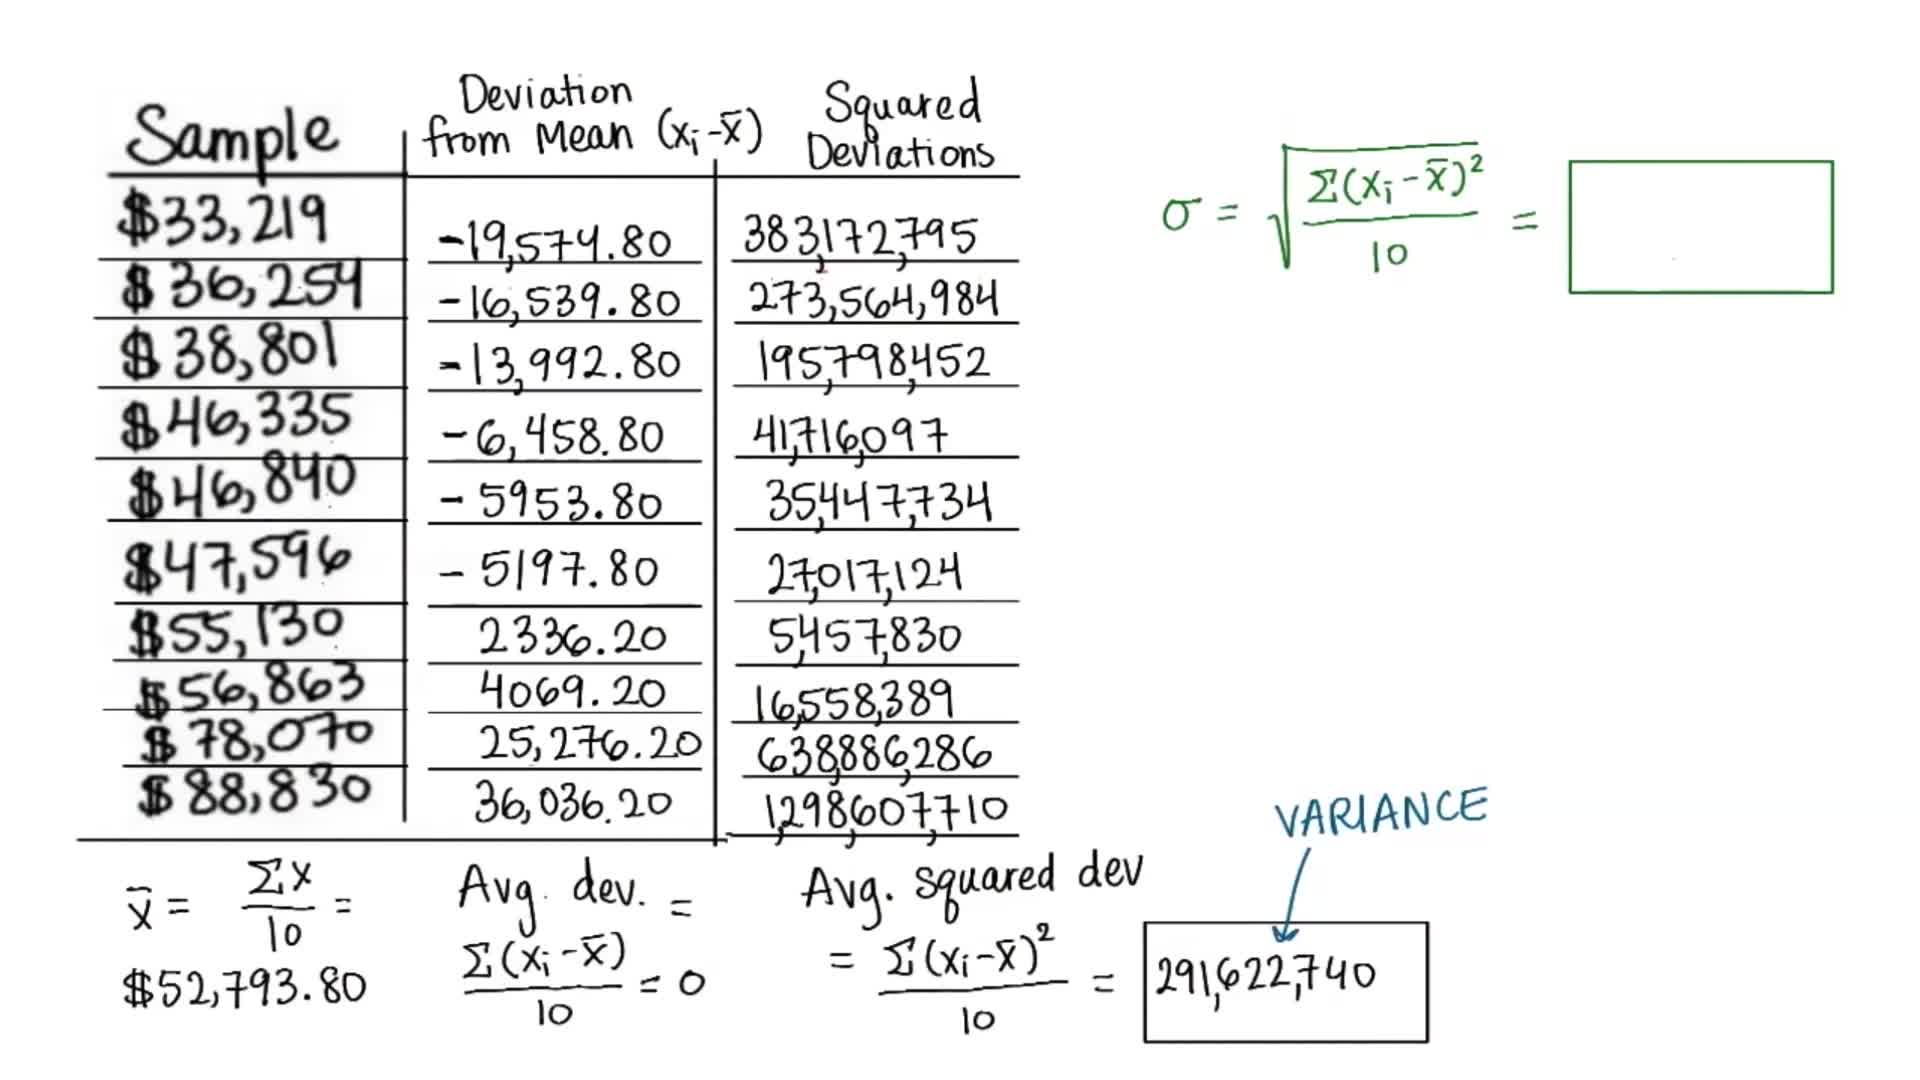 Sample
Deviation
from Mean (xᵢ-x̄)
Squared
Deviations
$33,219 -19,574.80 383,172,795
$36,254 -16,539.80 273,564,984
$38,801 -13,992.80 195,798,452
$46,335 -6,458.80 41,716,097
$46,840 -5953.80 35,447,734
$47,596 -5197.80 27,017,124
$55,130 2336.20 5,457,830
$56,863 4069.20 16,558,389
$78,070 25,276.20 638,886,286
$88,830 36,036.20 1,298,607,710
x̄ = Σx/10 =
$52,793.80
Avg. dev. =
Σ(xᵢ-x̄)/10 = 0
Avg. squared dev
= Σ(xᵢ-x̄)²/10 = 291,622,740
VARIANCE
σ = √(Σ(xᵢ-x̄)²/10) =